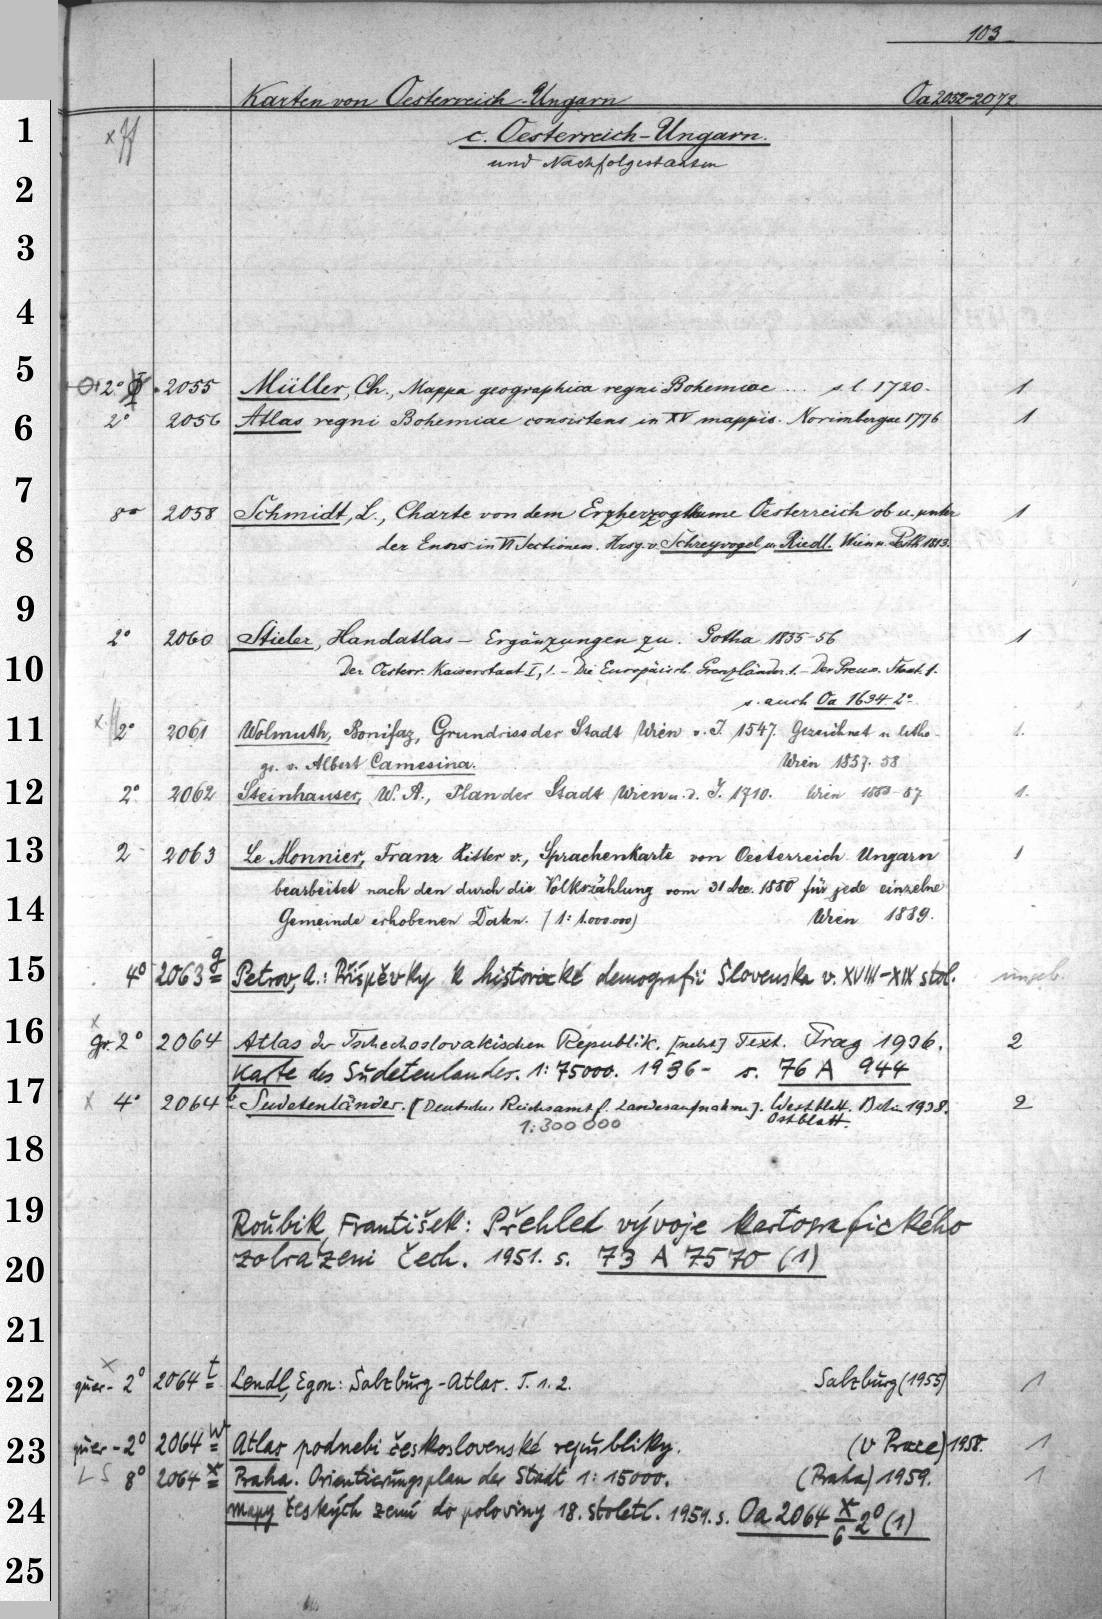 103
Karten von Oesterreich-Ungarn Oa 2052-2072
1 c. Oesterreich-Ungarn.
und Nachfolgestaaten
2
3
4
5 2° 2055 Müller, Ch., Mappa geographica regni Bohemiae ... s. l. 1720. 1
6 2° 2056 Atlas regni Bohemiae consistens in XV mappis. Norimbergae 1776 1
7 8° 2058 Schmidt, L., Charte von dem Erzherzogthume Oesterreich ob u. unter 1
8 der Enns in VI Sectionen. Hrsg. v. Schreyvogel u. Riedl. Wien u. Pesth 1813.
9 2° 2060 Stieler, Handatlas – Ergänzungen zu. Gotha 1835-56 1
10 Der Oesterr. Kaiserstaat I, 1. – Die Europäisch. Grenzländer 1. – Der Preuss. Staat 1.
s. auch Oa 1634-2°
11 2° 2061 Wolmuth, Bonifaz, Grundriss der Stadt Wien v. J. 1547. Gezeichnet u. litho- 1.
gr. v. Albert Camesina. Wien 1857-58
12 2° 2062 Steinhauser, W. A., Plan der Stadt Wien u. d. J. 1710. Wien 1.
13 2° 2063 Le Monnier, Franz Ritter v., Sprachenkarte von Oesterreich Ungarn 1
bearbeitet nach den durch die Volkszählung vom 31 Dec. 1880 für jede einzelne
14 Gemeinde erhobenen Daten. (1:1.000.000) Wien 1889.
15 4° 2063 g Petrov, A.: Příspěvky k historické demografii Slovenska v. XVIII-XIX stol. ungeb.
16 gr. 2° 2064 Atlas der Tschechoslovakischen Republik. [nebst] Text. Prag 1936. 2
Karte des Sudetenlandes. 1:75000. 1936- s. 76 A 944
17 4° 2064 b Sudetenländer. [Deutsches Reichsamt f. Landesaufnahme]. Westblatt. Berlin 1938. 2
1:300 000 Ostblatt.
18
19 Roubik, František: Přehled vývoje kartografického
20 zobrazení Čech. 1951. s. 73 A 7570 (1)
21
22 quer-2° 2064 t Lendl, Egon: Salzburg-Atlas. T. 1. 2. Salzburg (1955) 1
23 quer-2° 2064 w Atlas podnebi československé republiky. (v Praze) 1958. 1
LS 8° 2064 x Praha. Orientierungsplan der Stadt 1:15000. (Praha) 1959. 1
24 Mapy českých zemí do poloviny 18. století. 1951. s. Oa 2064 x/6 2° (1)
25